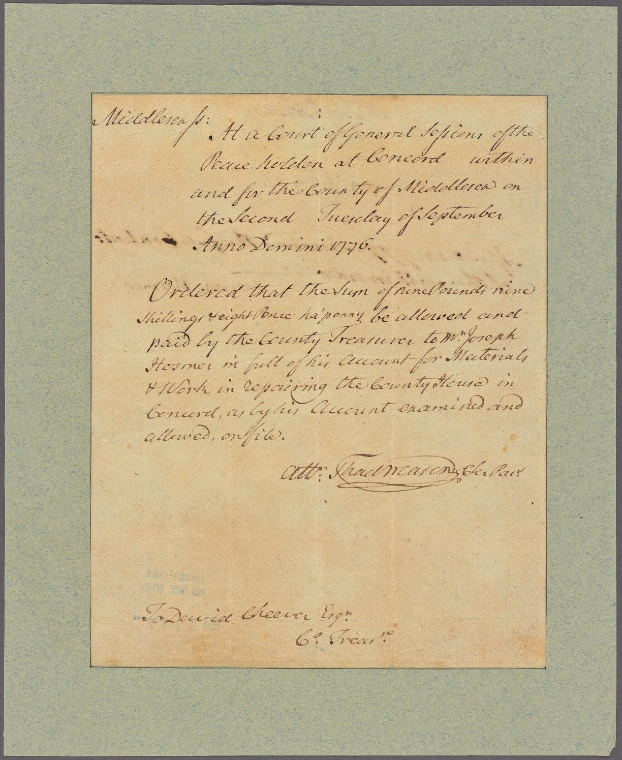 Middlesex ss:
At a Court of General Sessions of the
Peace holden at Concord within
and for the County of Middlesex on
the Second Tuesday of September
Anno Domini 1776.
Ordered that the Sum of nine Pounds nine
Shillings & eight Pence ha'penny be allowed and
paid by the County Treasurer to Mr. Joseph
Hosmer in full of his Account for Materials
& Work in repairing the County House in
Concord, as by his Account examined and
allowed, on file.
Attr. Thad Mason Cle Pacs
To David Cheever Esqr.
Co. Treasr.